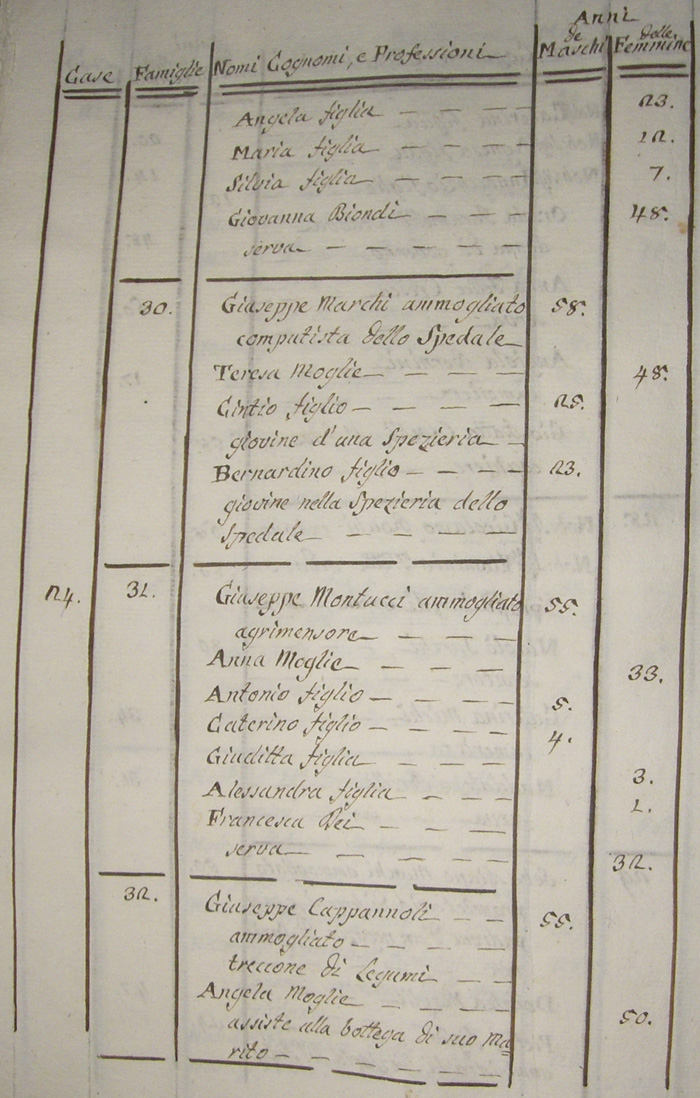 Anni
Case Famiglie Nomi Cognomi, e Professioni de Maschi delle Femmine
Angela figlia 23.
Maria figlia 12.
Silvia figlia 7.
Giovanna Biondi 48.
serva
30. Giuseppe Marchi ammogliato 58.
computista dello Spedale
Teresa Moglie 48.
Cintio figlio 25.
giovine d'una Spezieria
Bernardino figlio 23.
giovine nella Spezieria dello
Spedale
24. 31. Giuseppe Montucci ammogliato 55.
agrimensore
Anna Moglie 33.
Antonio figlio 5.
Caterino figlio 4.
Giuditta figlia 3.
Alessandra figlia 1.
Francesca Dei
serva 32.
32. Giuseppe Cappannoli 55.
ammogliato
treccone di Legumi
Angela Moglie 50.
assiste alla bottega di suo Ma=
rito